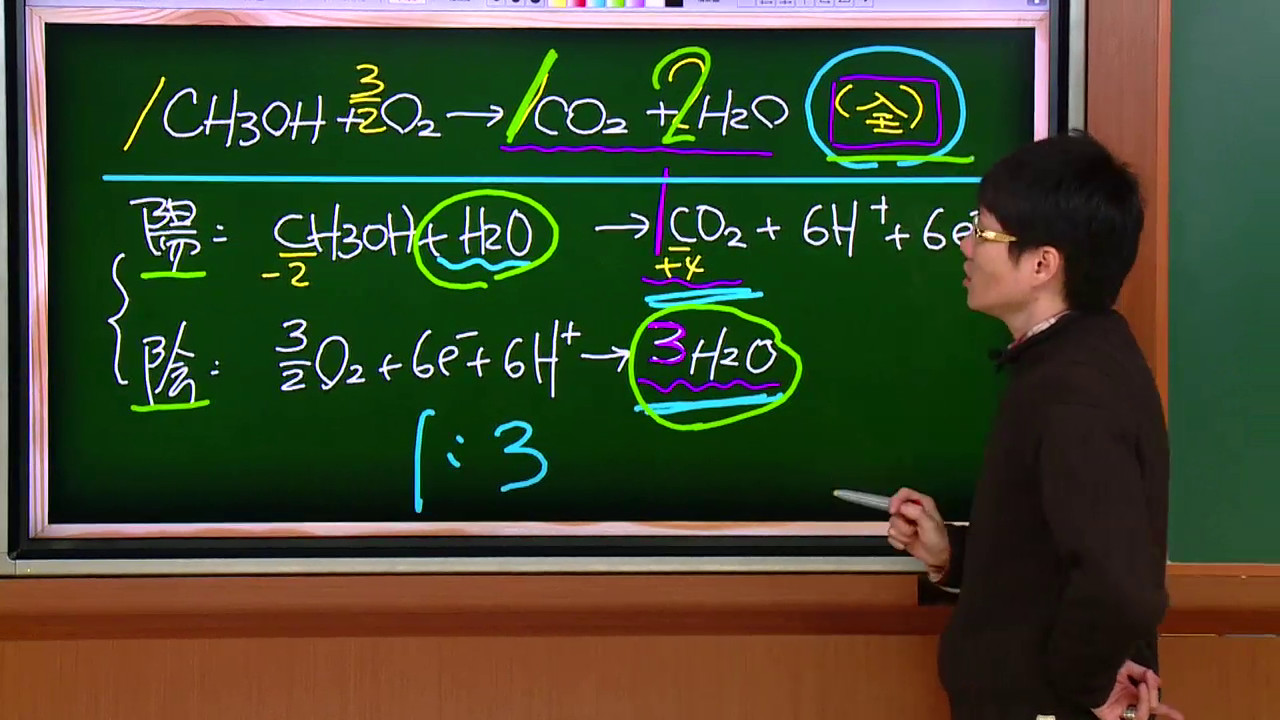 1CH3OH + 3/2 O₂ → 1CO₂ + 2H₂O (全)
陽: CH3OH + H₂O → 1CO₂ + 6H⁺ + 6e⁻
-2 +4
陰: 3/2 O₂ + 6e⁻ + 6H⁺ → 3H₂O
1:3